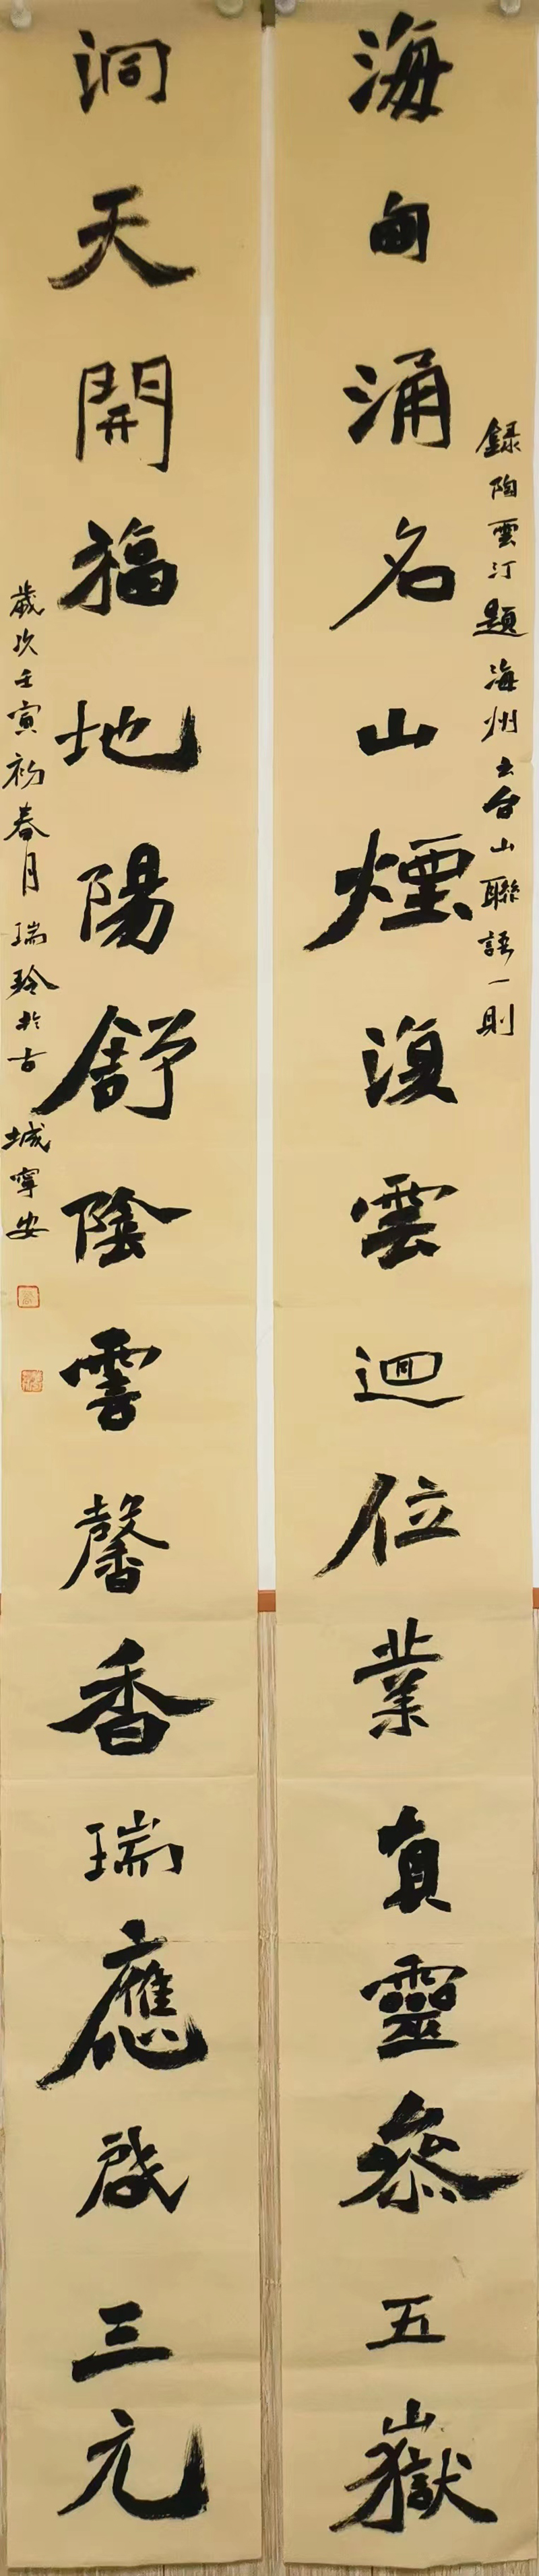 錄陶雲汀題海州云台山聯語一則
海甸涌名山煙復雲迴位業真靈參五嶽
洞天開福地陽舒陰馨香瑞應啟三元
歲次壬寅初春月瑞玲於古城寧安